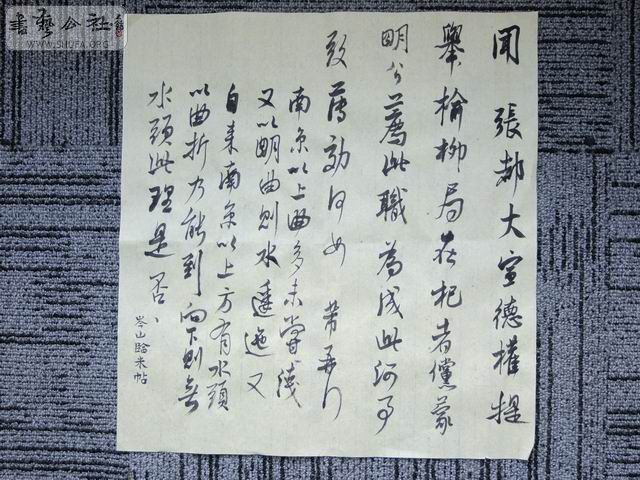 書藝公社
WWW.SHUFA.ORG
聞張都大宣德權提
舉榆柳局在杞者儻蒙
明公薦此職為成此河事
致薄効何如 芾再行
南京以上曲多未嘗淺
又以明曲則水逶迤又
自来南京以上方有水頭
以曲折乃能到向下則無
水頭此理是否、
岑山臨米帖